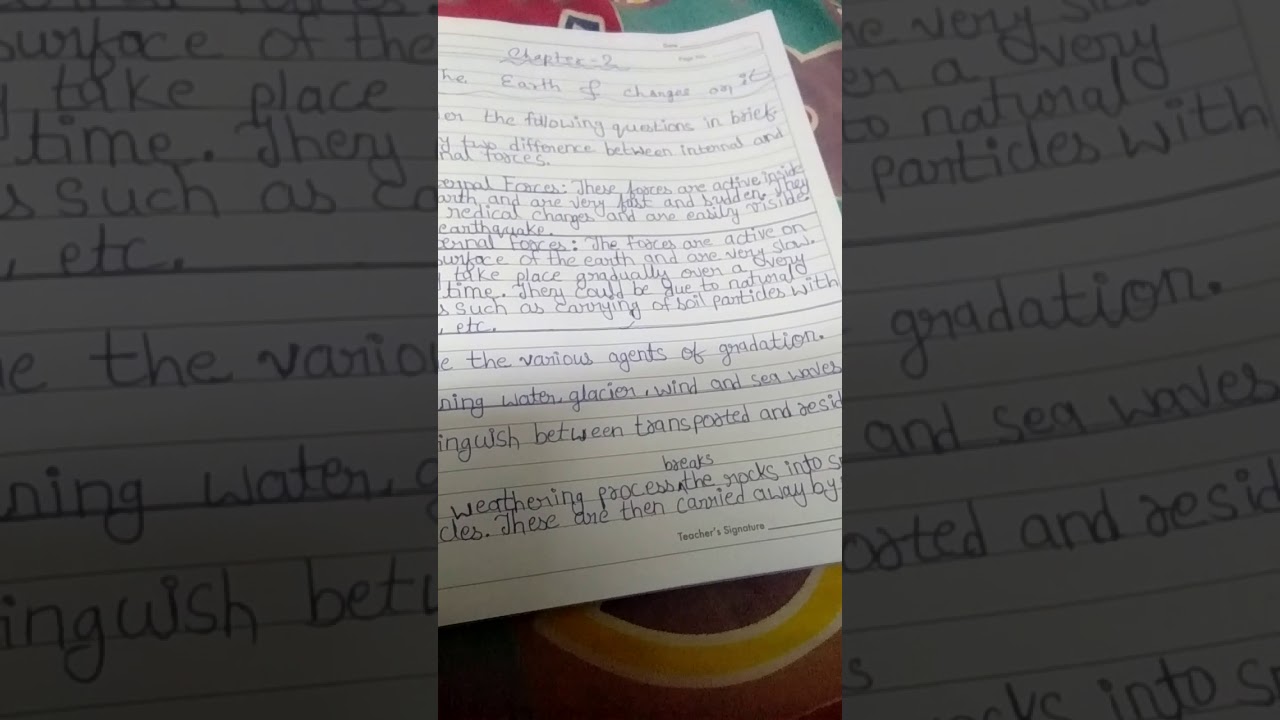 Date
Page No.
Chepter-2
he Earth & changes on it
er the following questions in brief
y two difference between internal and
nal forces.
ernal Forces: These forces are active inside
arth and are very fast and sudden. They
redical changes and are easily visible.
earthquake.
ernal forces: The forces are active on
urface of the earth and are very slow.
take place gradually over a very
time. They could be due to natural
s such as carrying of soil particles with
, etc.
e the various agents of gradation.
ning water, glacier, wind and sea waves
inguish between transported and resid
breaks
weathering process the rocks into s
cles. These are then carried away by
Teacher's Signature